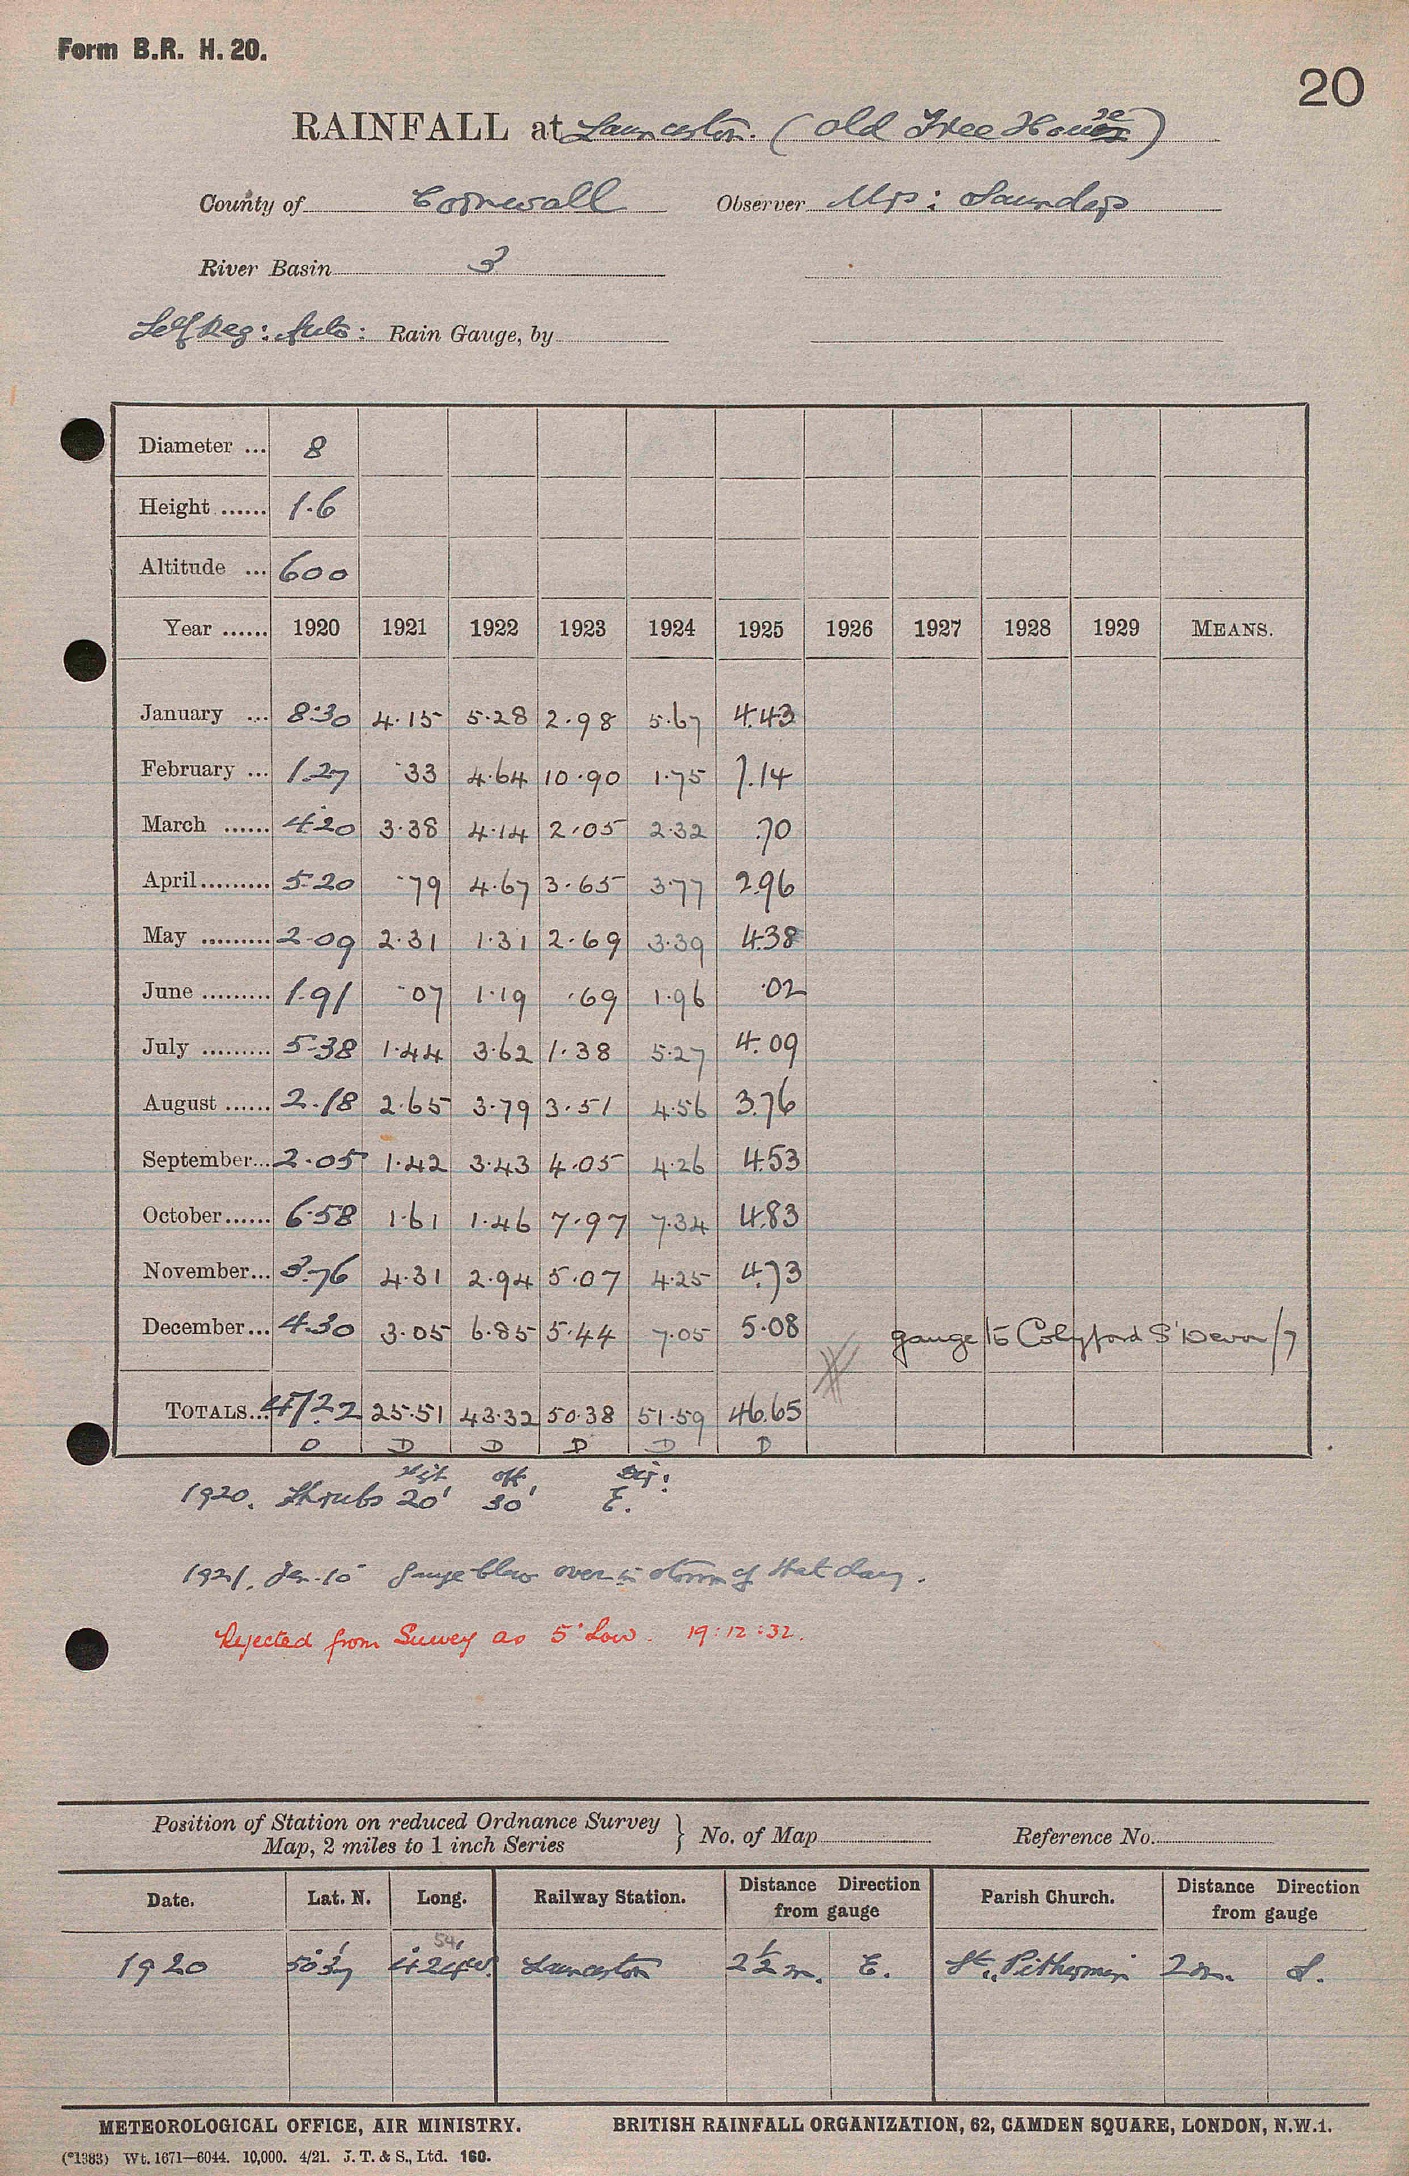 Form B.R. H. 20.
20
RAINFALL at Launceston. (Old Tree House)
County of Cornwall Observer Mrs: Saunders
River Basin 3
Self Reg: Auto: Rain Gauge, by
Diameter ... 8
Height ...... 1.6
Altitude ... 600
Year ...... 1920 1921 1922 1923 1924 1925 1926 1927 1928 1929 MEANS.
January ... 8.30 4.15 5.28 2.98 5.67 4.43
February ... 1.27 .33 4.64 10.90 1.75 7.14
March ...... 4.20 3.38 4.14 2.05 2.32 .70
April......... 5.20 .79 4.67 3.65 3.77 2.96
May ......... 2.09 2.31 1.31 2.69 3.39 4.38
June ......... 1.91 .07 1.19 .69 1.96 .02
July ......... 5.38 1.44 3.62 1.38 5.27 4.09
August ...... 2.18 2.65 3.79 3.51 4.56 3.76
September... 2.05 1.42 3.43 4.05 4.26 4.53
October...... 6.58 1.61 1.46 7.97 7.34 4.83
November... 3.76 4.31 2.94 5.07 4.25 4.73
December... 4.30 3.05 6.85 5.44 7.05 5.08 gauge to Colyford S' Devon /7
TOTALS... 47.22 25.51 43.32 50.38 51.59 46.65
D D D D D D
Hgt off Dir:
1920. Shrubs 20' 30' E.
1921. Jan. 15 gauge blew over in storm of that day.
Rejected from Survey as 5" Low. 19:12:32.
Position of Station on reduced Ordnance Survey
Map, 2 miles to 1 inch Series } No. of Map Reference No.
Date. Lat. N. Long. Railway Station. Distance Direction from gauge Parish Church. Distance Direction from gauge
54'
1920 50° 37' 4° 24' W. Launceston 2½ m. E. St. 2 m. S.
METEOROLOGICAL OFFICE, AIR MINISTRY. BRITISH RAINFALL ORGANIZATION, 62, CAMDEN SQUARE, LONDON, N.W.1.
(*1383) Wt. 1671—6044. 10,000. 4/21. J. T. & S., Ltd. 160.